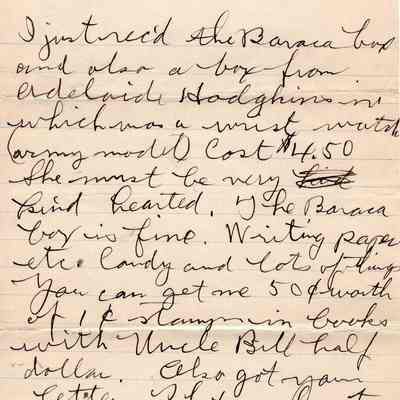 I just rec'd the Baraca box
and also a box from
Adelaide Hodghins in
which was a wrist watch
(army model) Cost $4.50
She must be very
kind hearted. The Baraca
box is fine. Writing paper
etc. Candy and lots of things
You can get me 50¢ worth
of 1¢ stamps in books
with Uncle Bill half
dollar. Also got your